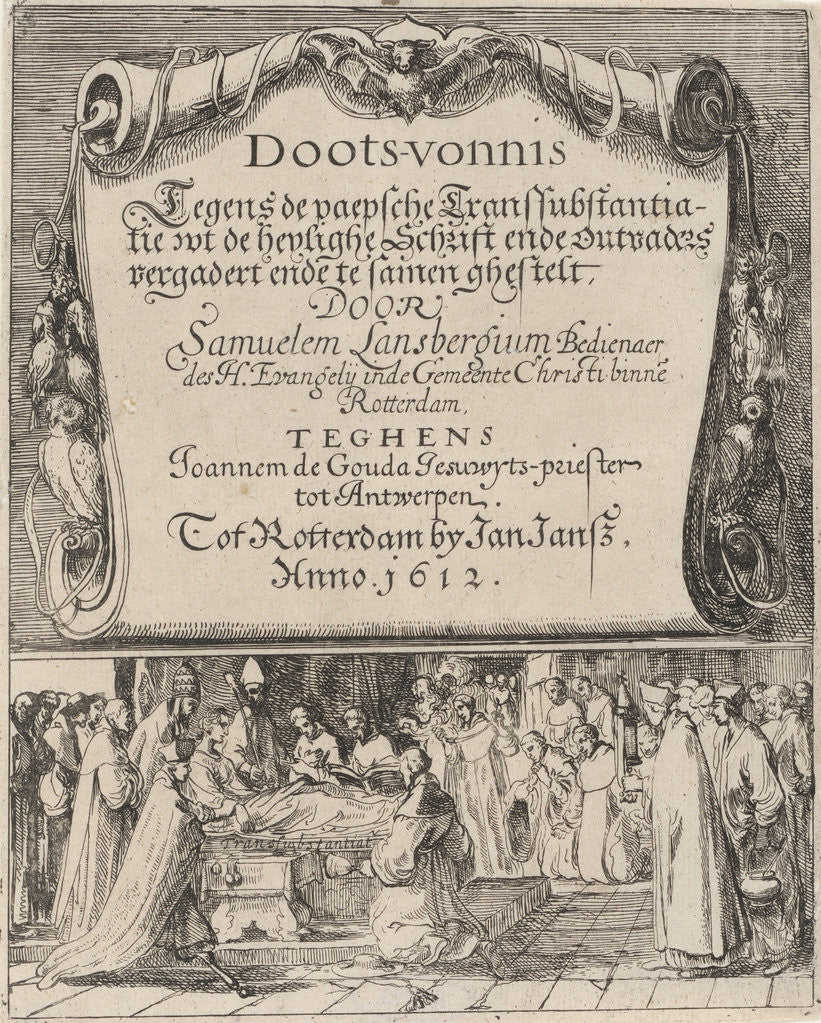 Doots-vonnis
Tegens de paepsche Transsubstantia-
tie wt de heylighe Schrift ende Outvaders
vergadert ende te samen ghestelt,
DOOR
Samuelem Lansbergium Bedienaer
des H. Evangelij inde Gemeente Christi binnē
Rotterdam,
TEGHENS
Joannem de Gouda Jesuwyts-priester
tot Antwerpen.
Tot Rotterdam by Jan Jansz,
Anno. 1612.
Transsubstantiat